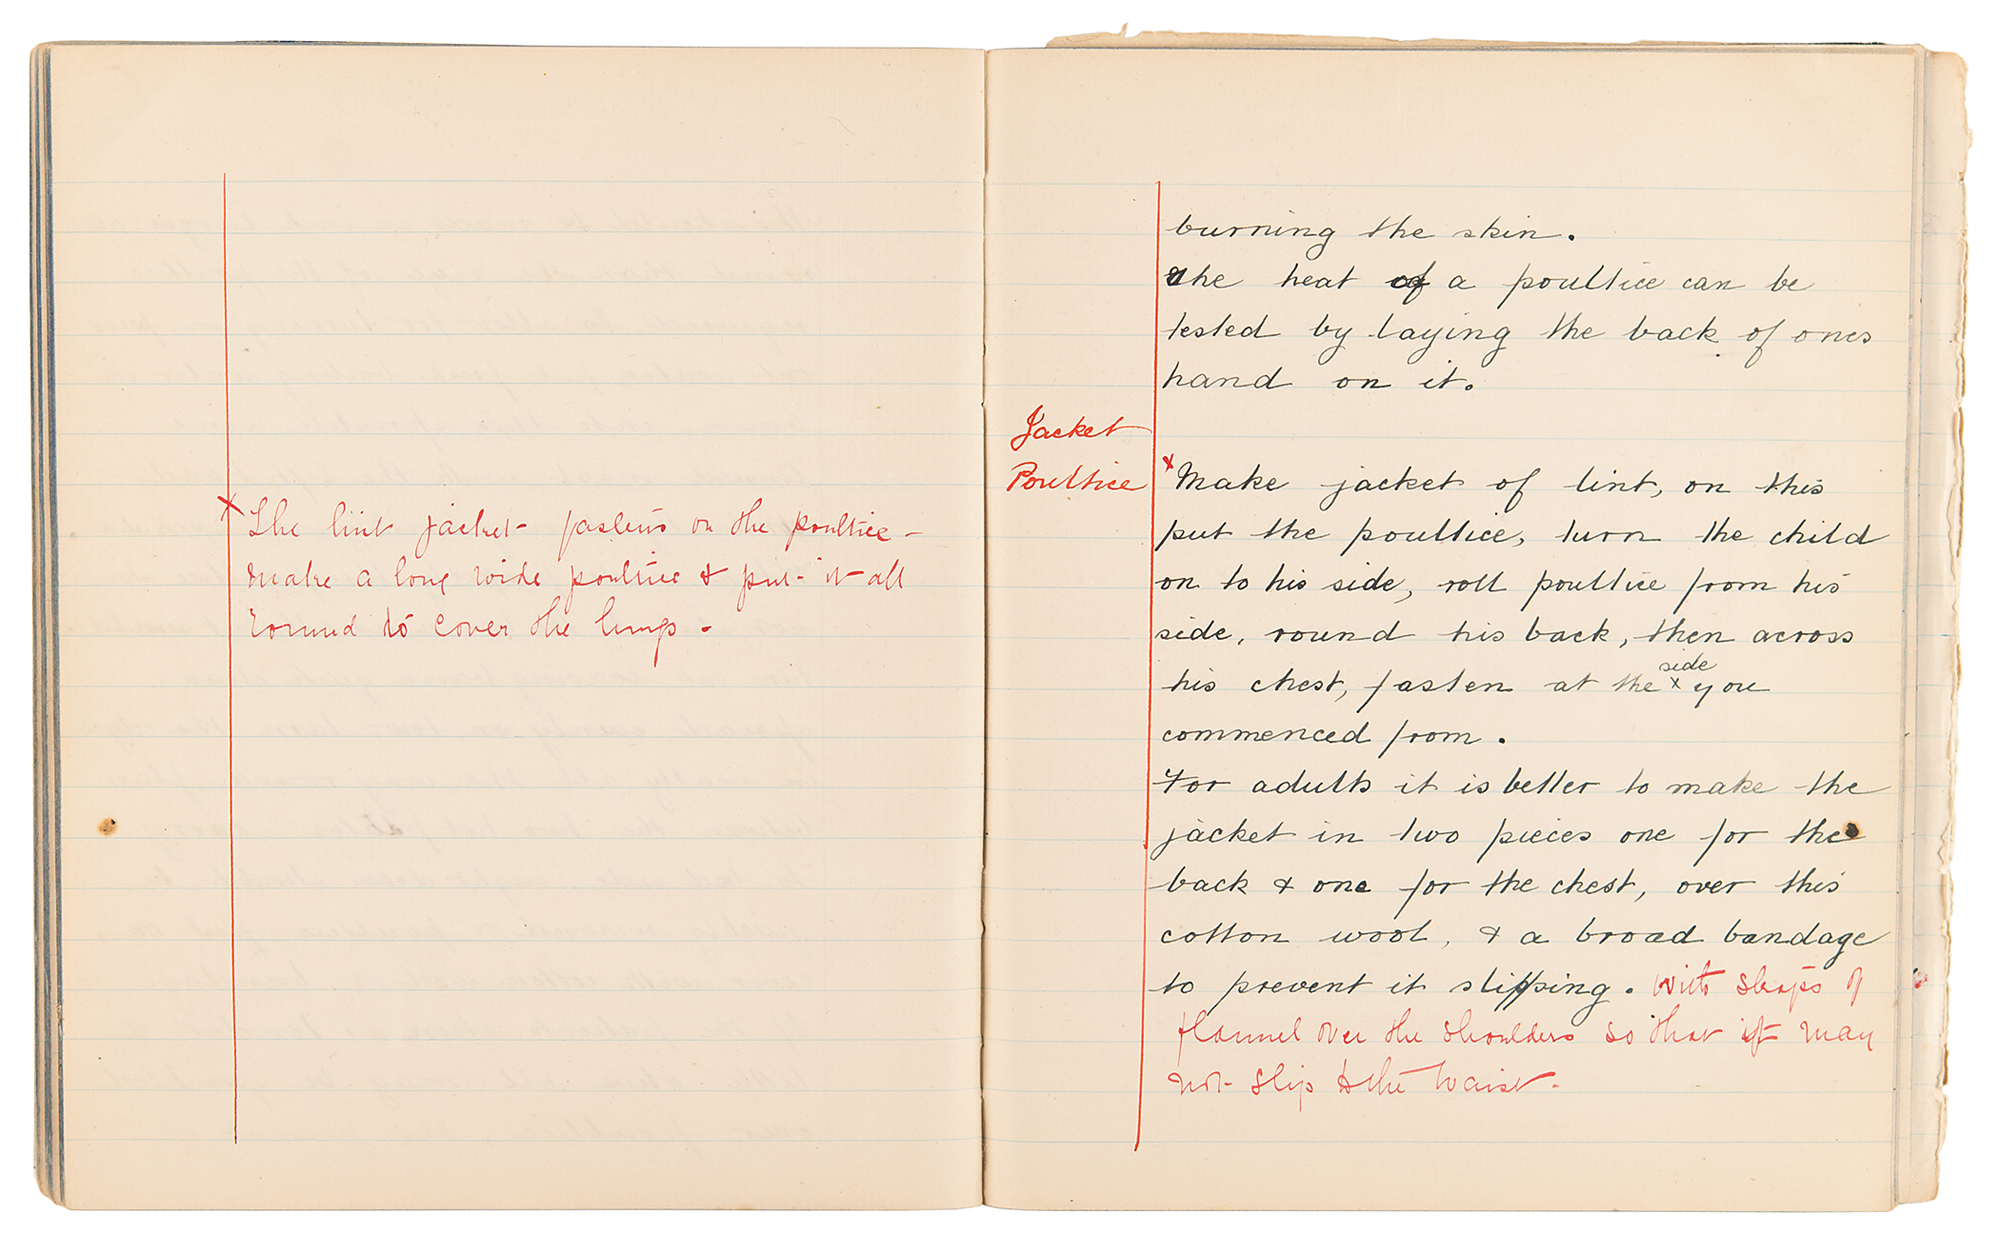 x The lint jacket fastens on the poultice –
make a long wide poultice & put it all
round to cover the lungs .
burning the skin .
The heat of a poultice can be
tested by laying the back of ones
hand on it.
Jacket
Poultice
x Make jacket of lint, on this
put the poultice, turn the child
on to his side, roll poultice from his
side, round his back, then across
his chest, fasten at the x side you
commenced from .
For adults it is better to make the
jacket in two pieces one for the
back & one for the chest, over this
cotton wool, & a broad bandage
to prevent it slipping . with straps of
flannel over the shoulders so that it may
not slip to the waist .